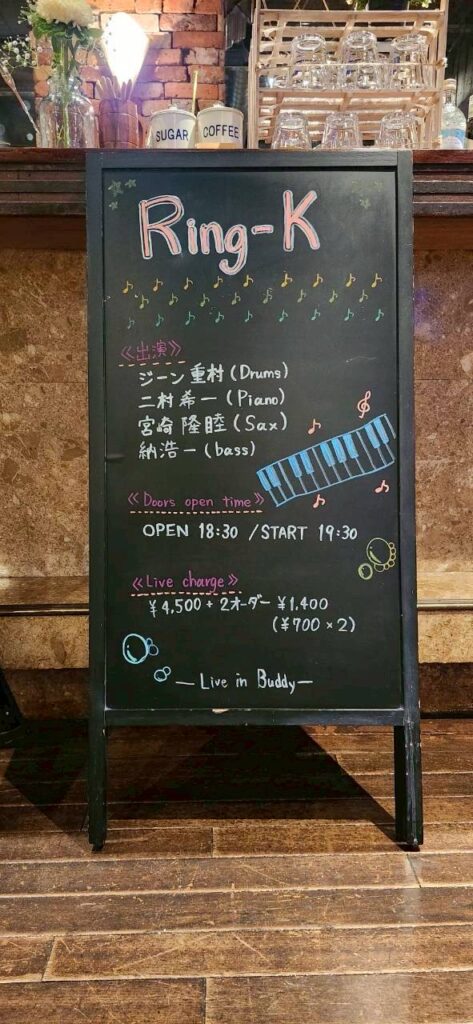 SUGAR
COFFEE
Ring-K
《出演》
ジーン重村 (Drums)
二村希一 (Piano)
宮崎隆睦 (Sax)
納浩一 (bass)
《Doors open time》
OPEN 18:30 / START 19:30
《Live charge》
¥4,500 + 2オーダー ¥1,400
(¥700×2)
— Live in Buddy —